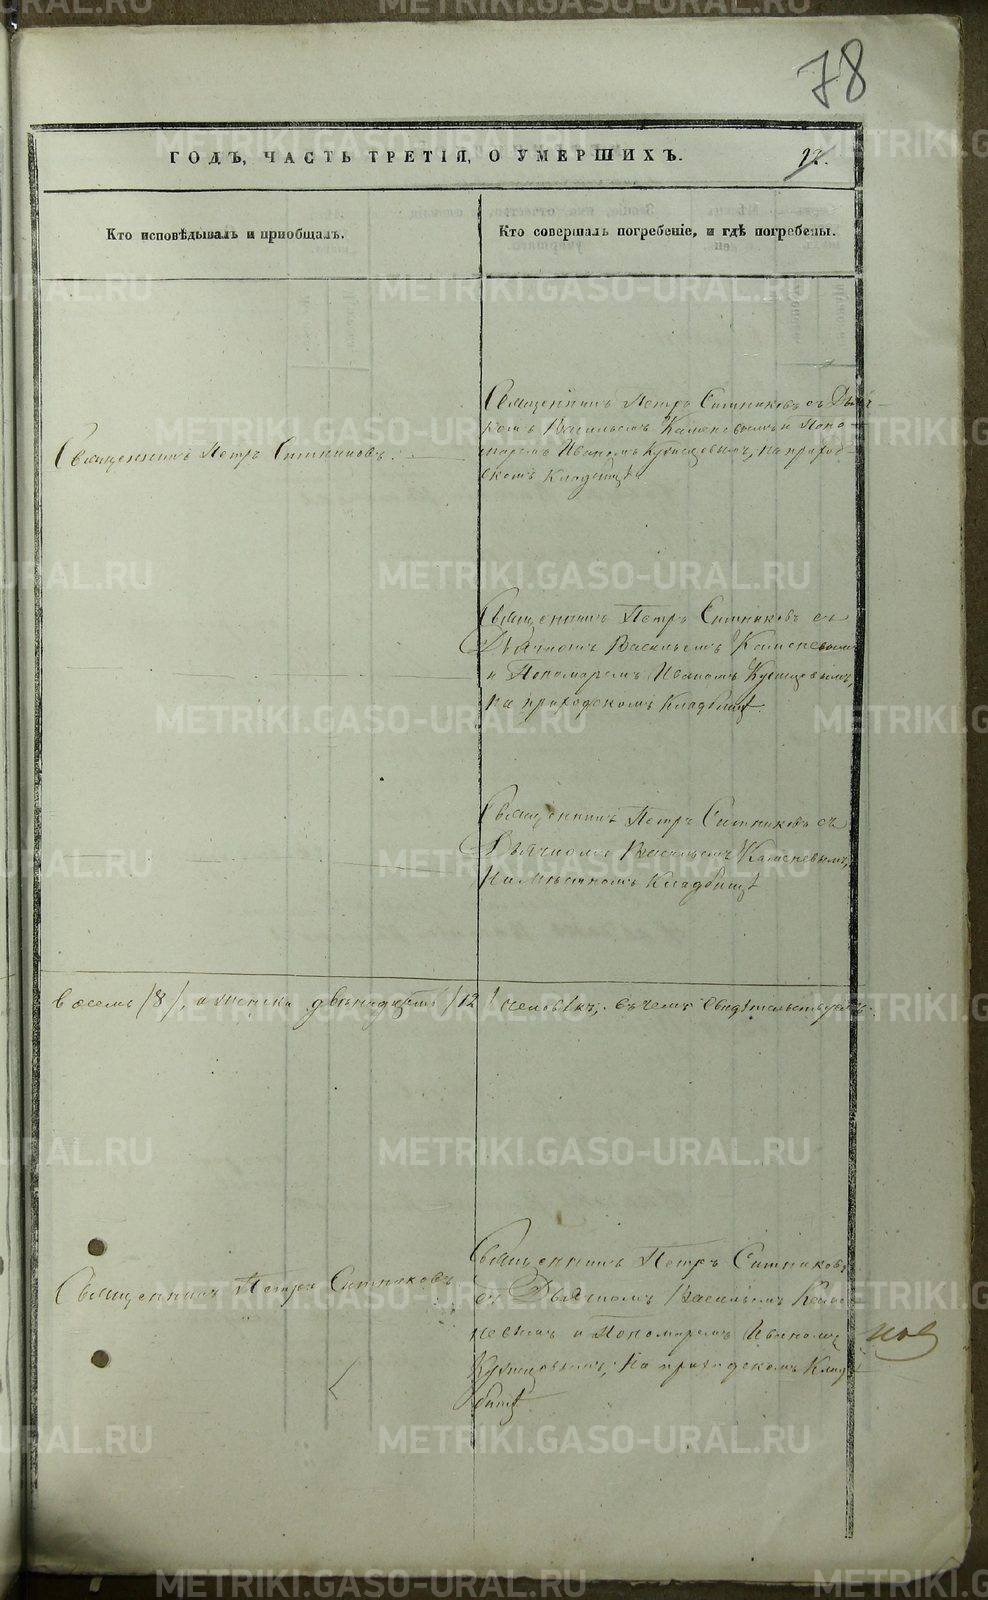 78
ГОДЪ, ЧАСТЬ ТРЕТІЯ, О УМЕРШИХЪ.
12.
Кто исповѣдывалъ и пріобщалъ.
Кто совершалъ погребеніе, и гдѣ погребены.
Священникъ Петръ Ситниковъ.
Священникъ Петръ Ситниковъ съ Дьяч-
комъ Васильемъ Каменевымъ и Поно-
маремъ Иваномъ Кузнецовымъ, на приход-
скомъ кладбищѣ
Священникъ Петръ Ситниковъ съ
Дьячкомъ Васильемъ Каменевымъ
и Пономаремъ Иваномъ Кузнецовымъ,
на приходскомъ кладбищѣ.
Священникъ Петръ Ситниковъ съ
Дьячкомъ Васильемъ Каменевымъ,
на кладбищѣ
восемь /8/, а двѣнадцать /12/ человѣкъ, въ чемъ свидѣтельствуемъ.
Священникъ Петръ Ситниковъ
Священникъ Петръ Ситниковъ
съ Дьячкомъ Васильемъ Каме-
невымъ и Пономаремъ Иваномъ
Кузнецовымъ, на приходскомъ клад-
бищѣ
METRIKI.GASO-URAL.RU